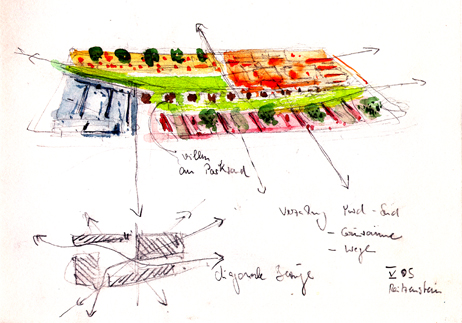 Villen
am Parkrand
Verzahnung Nord-Süd
- Grünräume
- Wege
diagonale Bezüge
V 05
Reitzenstein